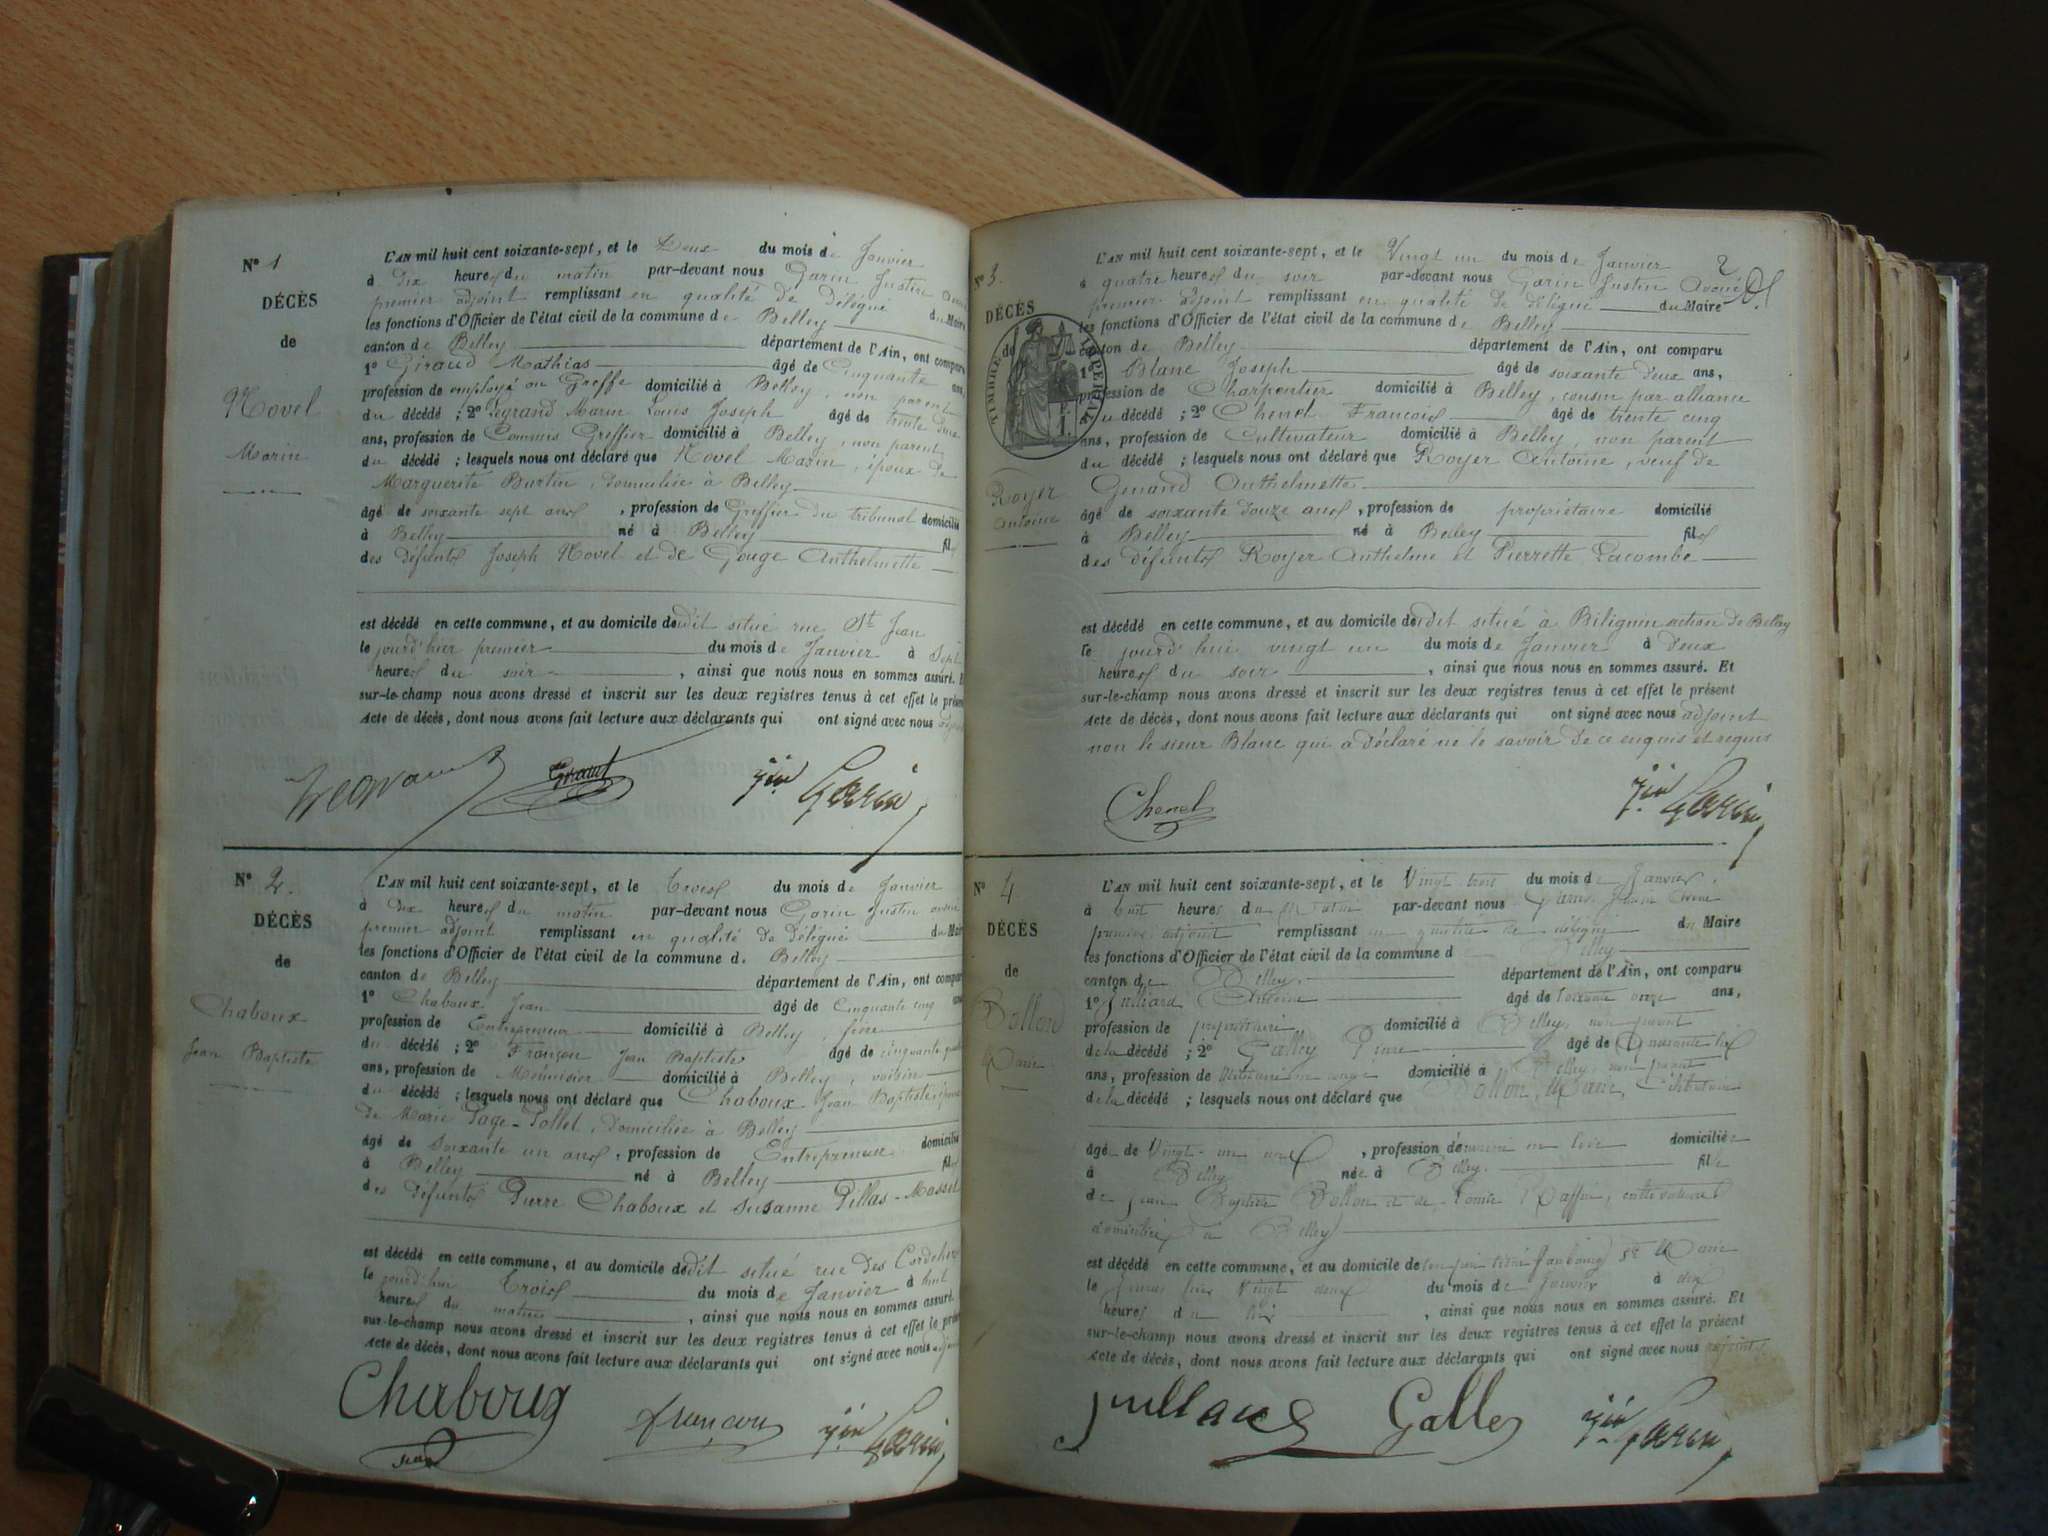 N° 1
DÉCÈS
de
Novel
Marin
L'AN mil huit cent soixante-sept, et le Deux du mois de Janvier
à Dix heures du matin par-devant nous Garin Justin
premier adjoint remplissant en qualité de Délégué du Maire
les fonctions d'Officier de l'état civil de la commune de Belley
canton de Belley département de l'Ain, ont comparu
1° Giraud Mathias âgé de Cinquante ans,
profession de employé au Greffe domicilié à Belley, non parent
du décédé ; 2° Legrand Marin Louis Joseph âgé de trente
ans, profession de Commis Greffier domicilié à Belley, non parent
du décédé ; lesquels nous ont déclaré que Novel Marin, époux de
Marguerite Burtin, domiciliée à Belley
âgé de soixante sept ans, profession de Greffier du tribunal domicilié
à Belley né à Belley fils
des défunts Joseph Novel et de Gouge Anthelmette
est décédé en cette commune, et au domicile dudit situé rue St Jean
le jourd'hier premier du mois de Janvier à Sept
heures du soir, ainsi que nous nous en sommes assuré. Et
sur-le-champ nous avons dressé et inscrit sur les deux registres tenus à cet effet le présent
acte de décès, dont nous avons fait lecture aux déclarants qui ont signé avec nous adjoint
Legrand Giraud Jin Garin
N° 2.
DÉCÈS
de
Chaboux
Jean Baptiste
L'AN mil huit cent soixante-sept, et le Trois du mois de Janvier
à Dix heures du matin par-devant nous Garin Justin avoué
premier adjoint remplissant en qualité de Délégué du Maire
les fonctions d'Officier de l'état civil de la commune de Belley
canton de Belley département de l'Ain, ont comparu
1° Chaboux Jean âgé de Cinquante cinq ans
profession de Entrepreneur domicilié à Belley, frère
du décédé ; 2° Françon Jean Baptiste âgé de cinquante
ans, profession de Menuisier domicilié à Belley, voisin
du décédé ; lesquels nous ont déclaré que Chaboux Jean Baptiste, époux
de Marie Page-Pollet, domiciliée à Belley
âgé de Soixante un ans, profession de Entrepreneur domicilié
à Belley né à Belley fils
des défunts Pierre Chaboux et Susanne Pillas-Mosset
est décédé en cette commune, et au domicile dudit situé rue des Cordeliers
le jourd'hui Trois du mois de Janvier à huit
heures du matin, ainsi que nous nous en sommes assuré.
sur-le-champ nous avons dressé et inscrit sur les deux registres tenus à cet effet le présent
acte de décès, dont nous avons fait lecture aux déclarants qui ont signé avec nous adjoint
Chaboux Françon Jin Garin
Jean
2
N° 3.
DÉCÈS
de
TIMBRE IMPERIAL
Royer
Antoine
L'AN mil huit cent soixante-sept, et le Vingt un du mois de Janvier
à quatre heures du soir par-devant nous Garin Justin Avoué
premier adjoint remplissant en qualité de délégué du Maire
les fonctions d'Officier de l'état civil de la commune de Belley
canton de Belley département de l'Ain, ont comparu
1° Blanc Joseph âgé de soixante deux ans,
profession de Charpentier domicilié à Belley, cousin par alliance
du décédé ; 2° Chenel François âgé de trente cinq
ans, profession de Cultivateur domicilié à Belley, non parent
du décédé ; lesquels nous ont déclaré que Royer Antoine, veuf de
Anthelmette
âgé de soixante douze ans, profession de propriétaire domicilié
à Belley né à Belley fils
des défunts Royer Anthelme et Pierrette Lacombe
est décédé en cette commune, et au domicile dudit situé à Bilignin section de Belley
le jourd'hui vingt un du mois de Janvier à Deux
heures du soir, ainsi que nous nous en sommes assuré. Et
sur-le-champ nous avons dressé et inscrit sur les deux registres tenus à cet effet le présent
acte de décès, dont nous avons fait lecture aux déclarants qui ont signé avec nous adjoint
non le sieur Blanc qui a déclaré ne le savoir de ce enquis et requis
Chenel Jin Garin
N° 4
DÉCÈS
de
Bollon
Marie
L'AN mil huit cent soixante-sept, et le Vingt trois du mois de Janvier.
à huit heures du matin par-devant nous Garin Justin Avoué
premier adjoint remplissant en qualité de délégué du Maire
les fonctions d'Officier de l'état civil de la commune de Belley
canton de Belley. département de l'Ain, ont comparu
1° Juilliard Antoine âgé de soixante onze ans,
profession de propriétaire domicilié à Belley, non parent
de la décédé ; 2° Galley Pierre âgé de
ans, profession de domicilié à Belley, non parent
de la décédé ; lesquels nous ont déclaré que Bollon Marie, Célibataire
âgé de Vingt-un ans, profession d'ouvrière en soie domiciliée
à Belley née à Belley. fille
de Jean Baptiste Bollon et de Raffin, cultivateurs
domiciliés à Belley
est décédé en cette commune, et au domicile de faubourg St Marie
le jourd'hier Vingt deux du mois de Janvier à dix
heures du soir, ainsi que nous nous en sommes assuré. Et
sur-le-champ nous avons dressé et inscrit sur les deux registres tenus à cet effet le présent
acte de décès, dont nous avons fait lecture aux déclarants qui ont signé avec nous adjoint.
Galley Jin Garin